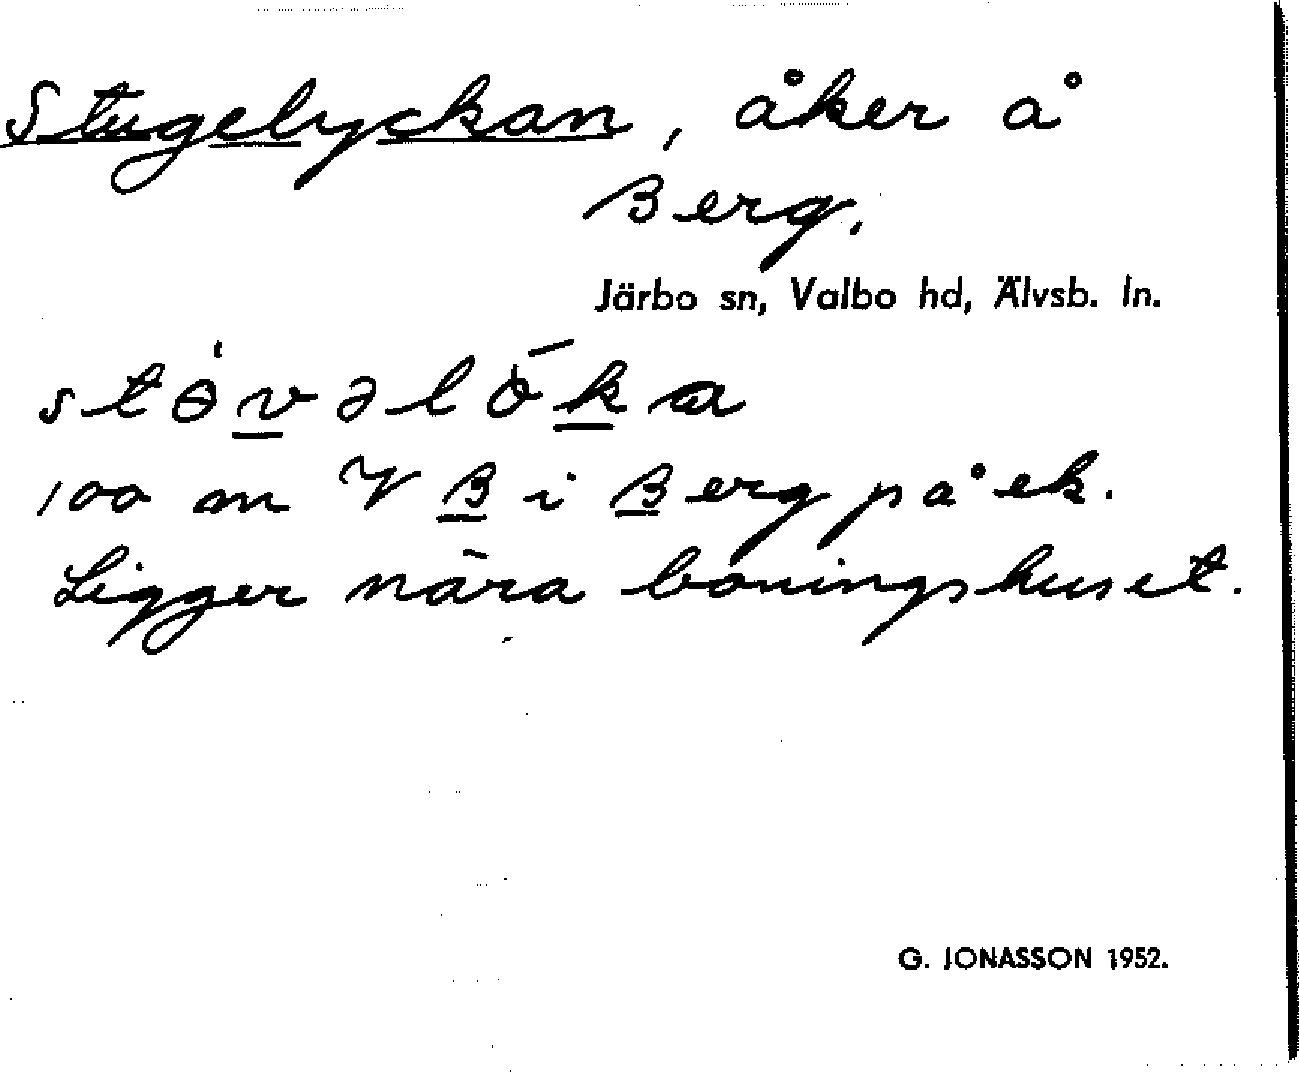 Stugelyckan, åker å
Berg.
Järbo sn, Valbo hd, Älvsb. ln.
stɵ́vəlòka
100 m V B i Berg på ek.
Ligger nära boningshuset.
G. JONASSON 1952.